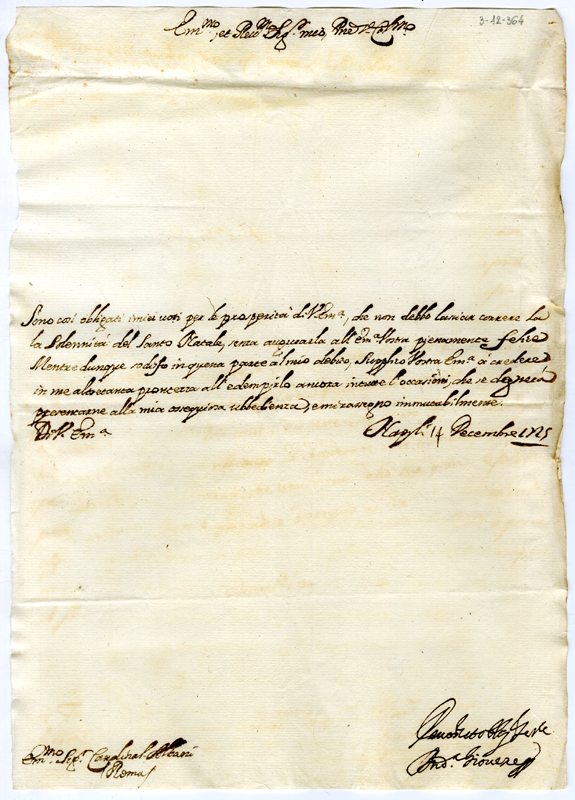 3-12-364
Em.mo, et Rev.mo Sig.r mio, Pne Col.mo
Sono così obligati i miei voti per le prosperità di V. Em.a, che non debbo lasciar correre la
la Solennità del Santo Natale, senza augurarla all'Em.a Vostra pienamente felice
Mentre dunque sodisfo in questa parte al mio debito, Supplico Vostra Em.a à credere
in me altretanta prontezza all'adempirlo ancora in tutte l'occasioni, che se degnerà
presentarne alla mia ossequiosa ubbedienza, e mi rassegno immutabilmente.
Di V. Em.a Napoli 14 Decembre 1725
Em.mo Sig.r Cardinal Albani
Roma